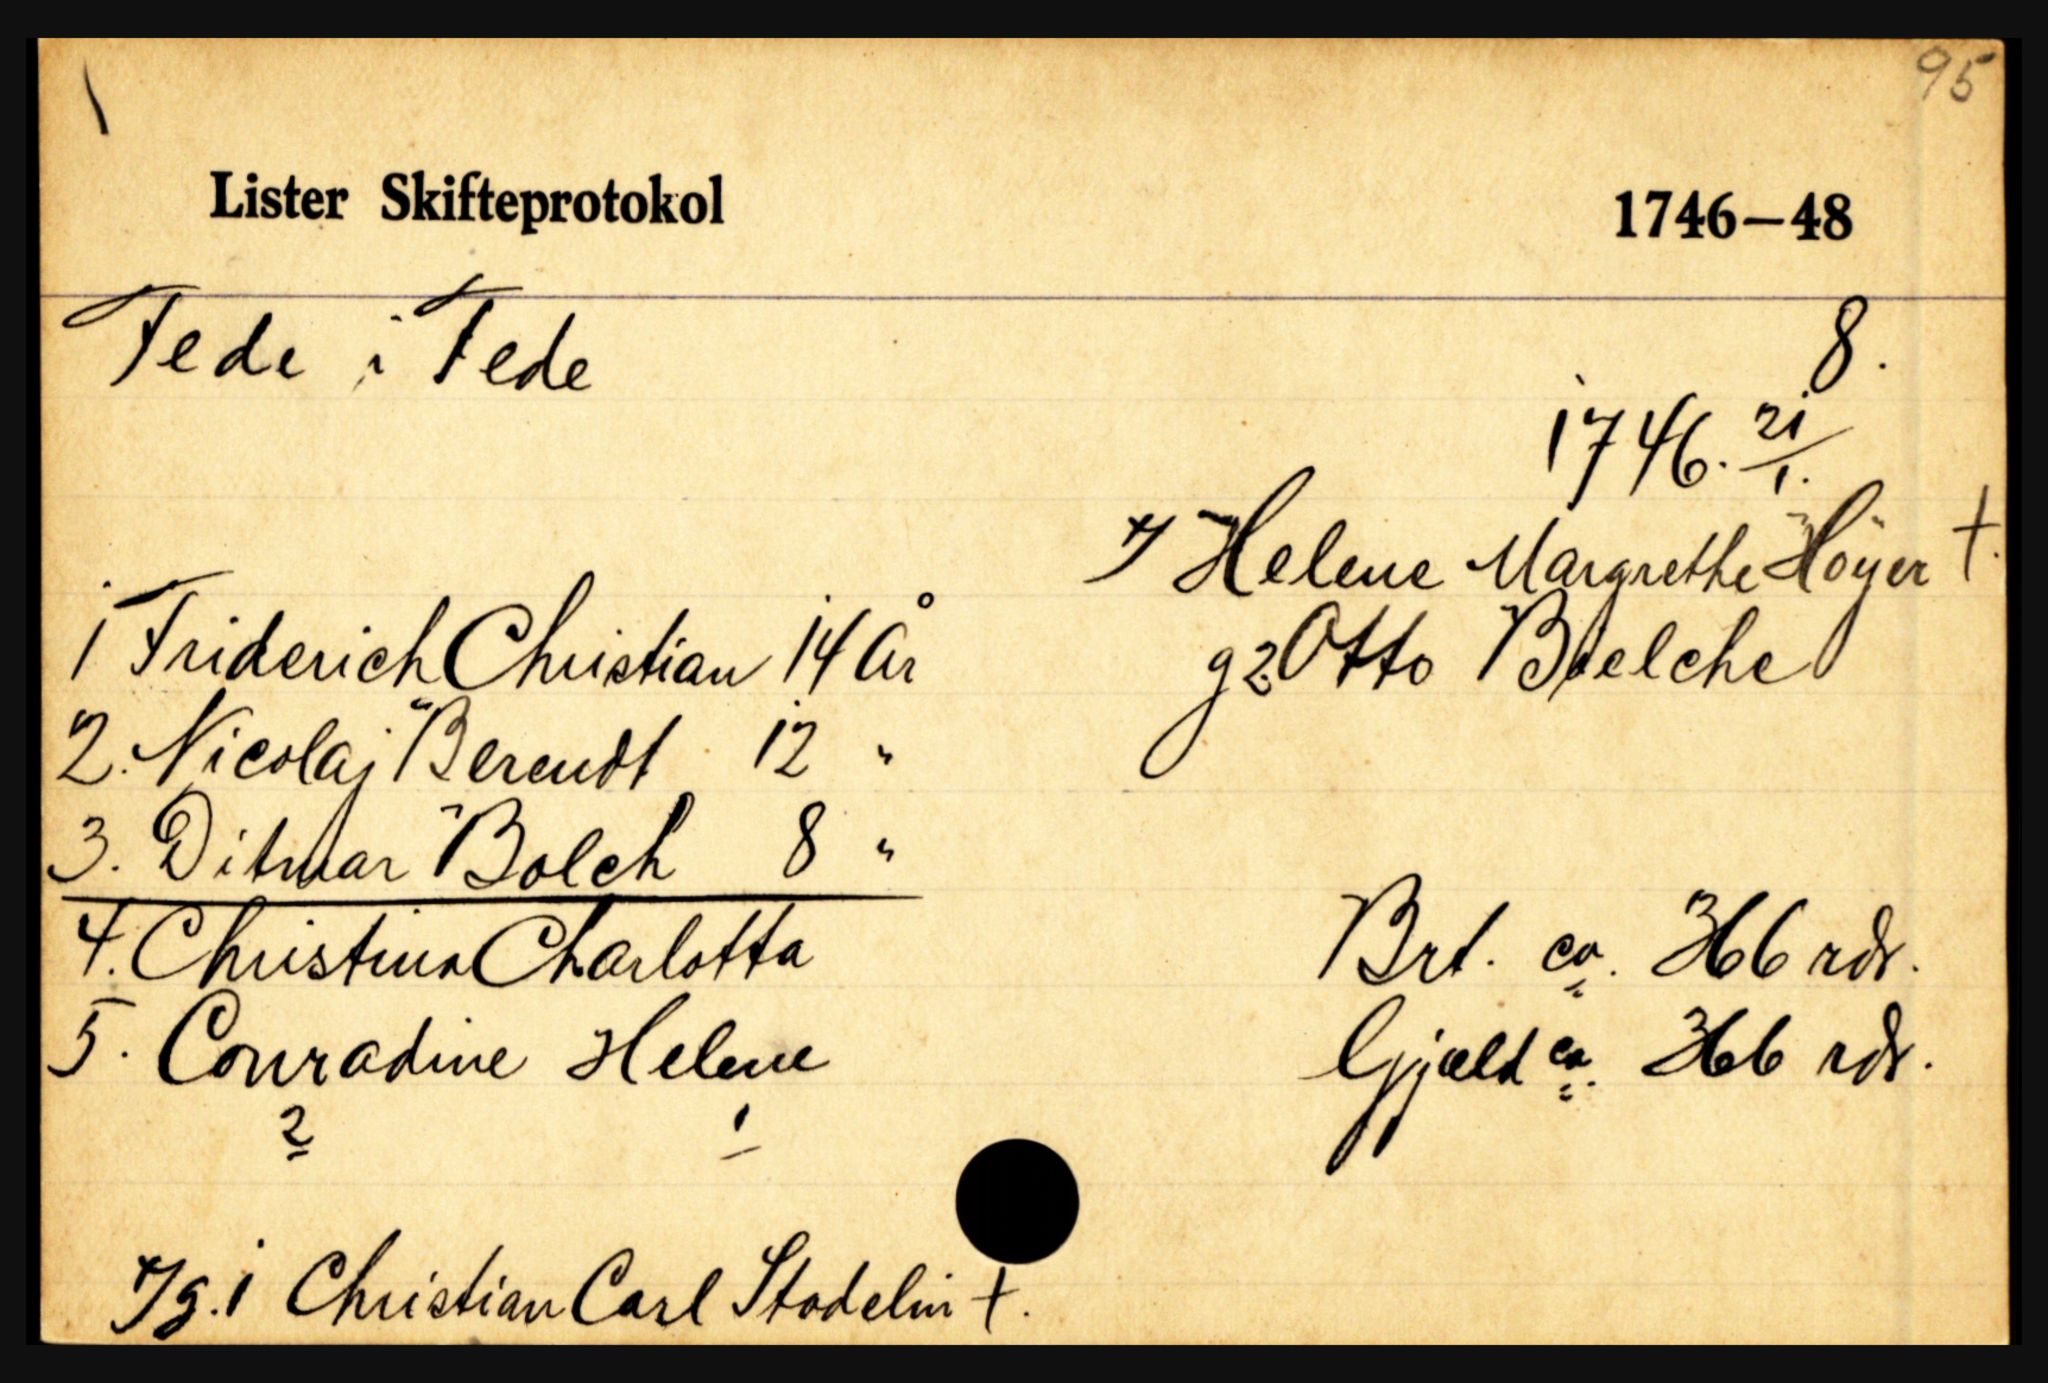 95
Lister Skifteprotokol 1746—48
Fede i Fede 8.
1746. 21/1.
*/ Helene Margrethe Höyer †.
g 2. Otto Bielche
1 Friderich Christian 14 År
2. Nicolaj Berendt 12 "
3. Ditmar Bolch 8 "
4. Christina Charlotta
5. Conradine Helene
2 1
Brt. ca. 366 rdr.
Gjæld ca. 366 rdr.
*/ g. 1 Christian Carl Stodelin †.